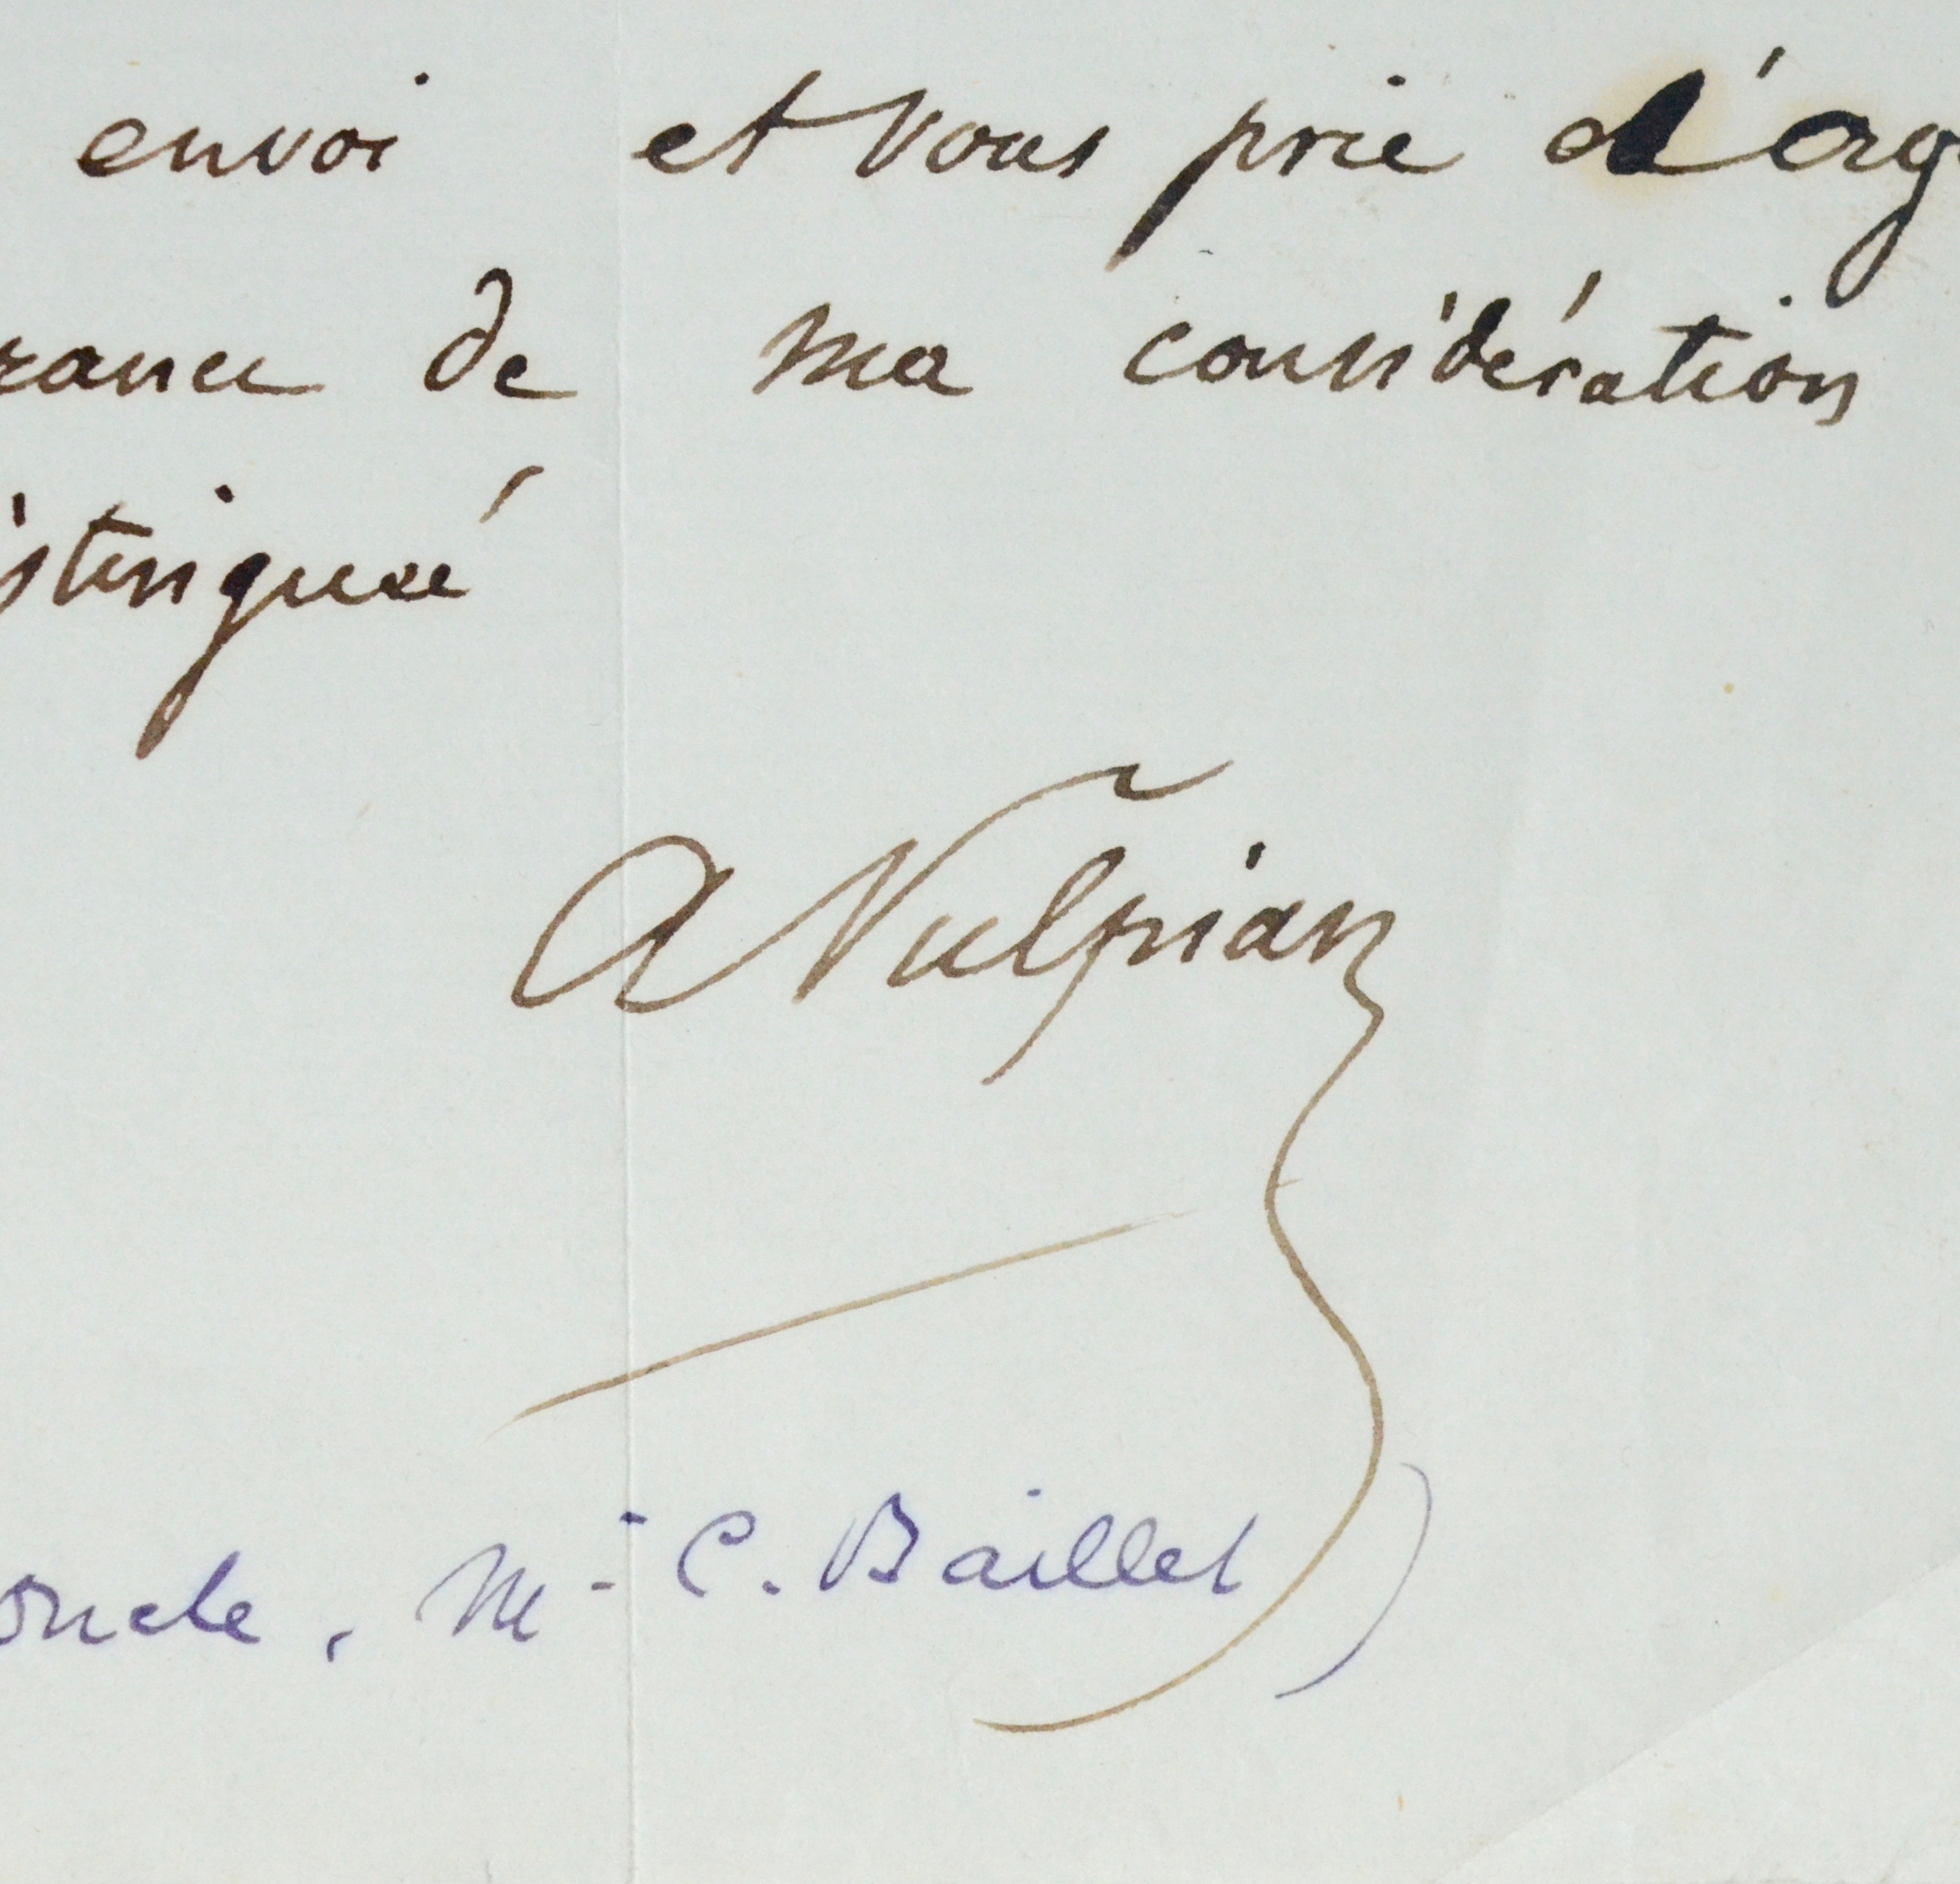 envoi et vous prie d'ag
rance de ma considération
istinguée
A Vulpian
oncle, Mr C. Baillet)